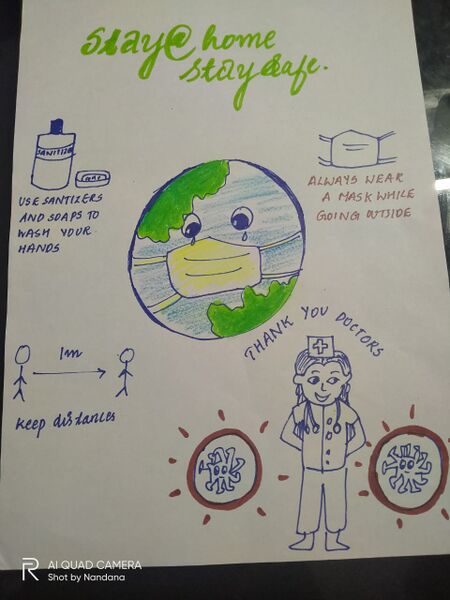 Stay @ home
stay safe.
SANITIZER
USE SANTIZERS
AND SOAPS TO
WASH YOUR
HANDS
ALWAYS WEAR
A MASK WHILE
GOING OUTSIDE
1m
keep distances
THANK YOU DOCTORS
AI QUAD CAMERA
Shot by Nandana